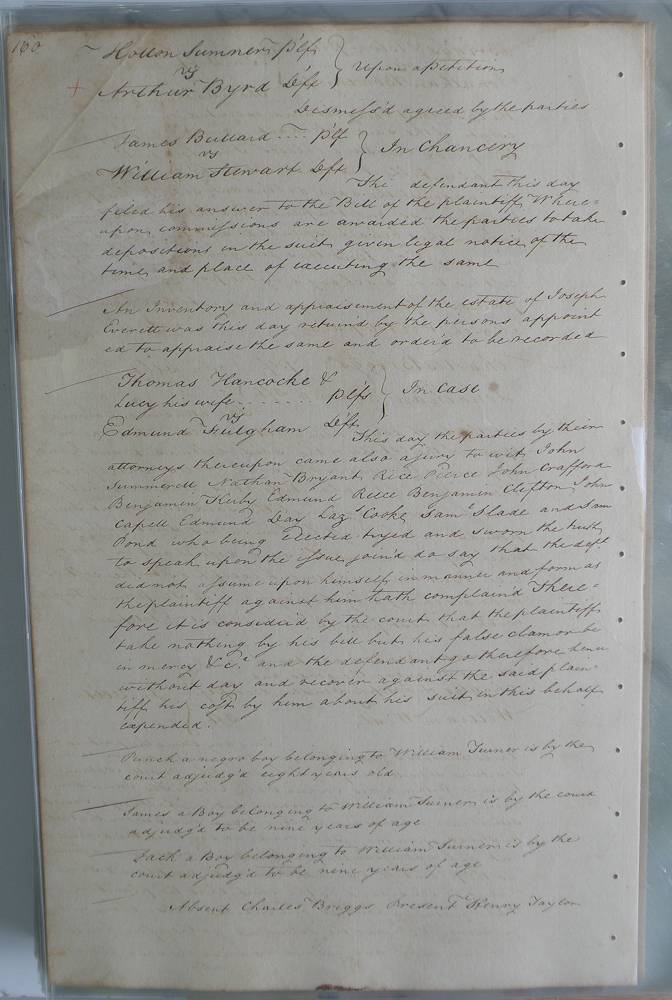 160
Holton Sumner plf
vs } Upon a petition
Arthur Byrd Deft
Dismiss'd agreed by the parties
James Bullard plf
vs } In Chancery
William Stewart Deft
The defendant this day
filed his answer to the Bill of the plaintiff Where=
upon commissions are awarded the parties to take
depositions in the suit given legal notice of the
time and place of executing the same
An Inventory and appraisement of the estate of Joseph
Everett was this day return'd by the persons appoint
ed to appraise the same and order'd to be recorded
Thomas Hancocke &
Lucy his wife plfs } In Case
vs
Edmund Fulgham Deft
This day the parties by their
attorneys thereupon came also a jury to wit John
Summerell Nathan Bryant Rice Pierce John Crafford
Benjamin Kirby Edmund Reece Benjamin Clifton John
Capell Edmund Day Lazs Cooke Saml Slade and Sam
Pond who being elected tryed and sworn the truth
to speak upon the issue join'd do say that the deft
did not assume upon himself in manner and form as
the plaintiff against him hath complain'd There=
fore it is consider'd by the court that the plaintiff
take nothing by his bill but his false clamor be
in mercy &c.a and the defendant go therefore hence
without day and recover against the said plain=
tiff his cost by him about his suit in this behalf
expended.
Punch a negro boy belonging to William Turner is by the
court adjudg'd eight years old
James a Boy belonging to William Turner is by the court
adjudg'd to be nine years of age
Zach a Boy belonging to William Turner is by the
court adjudg'd to be nine years of age
Absent Charles Briggs Present Henry Taylor